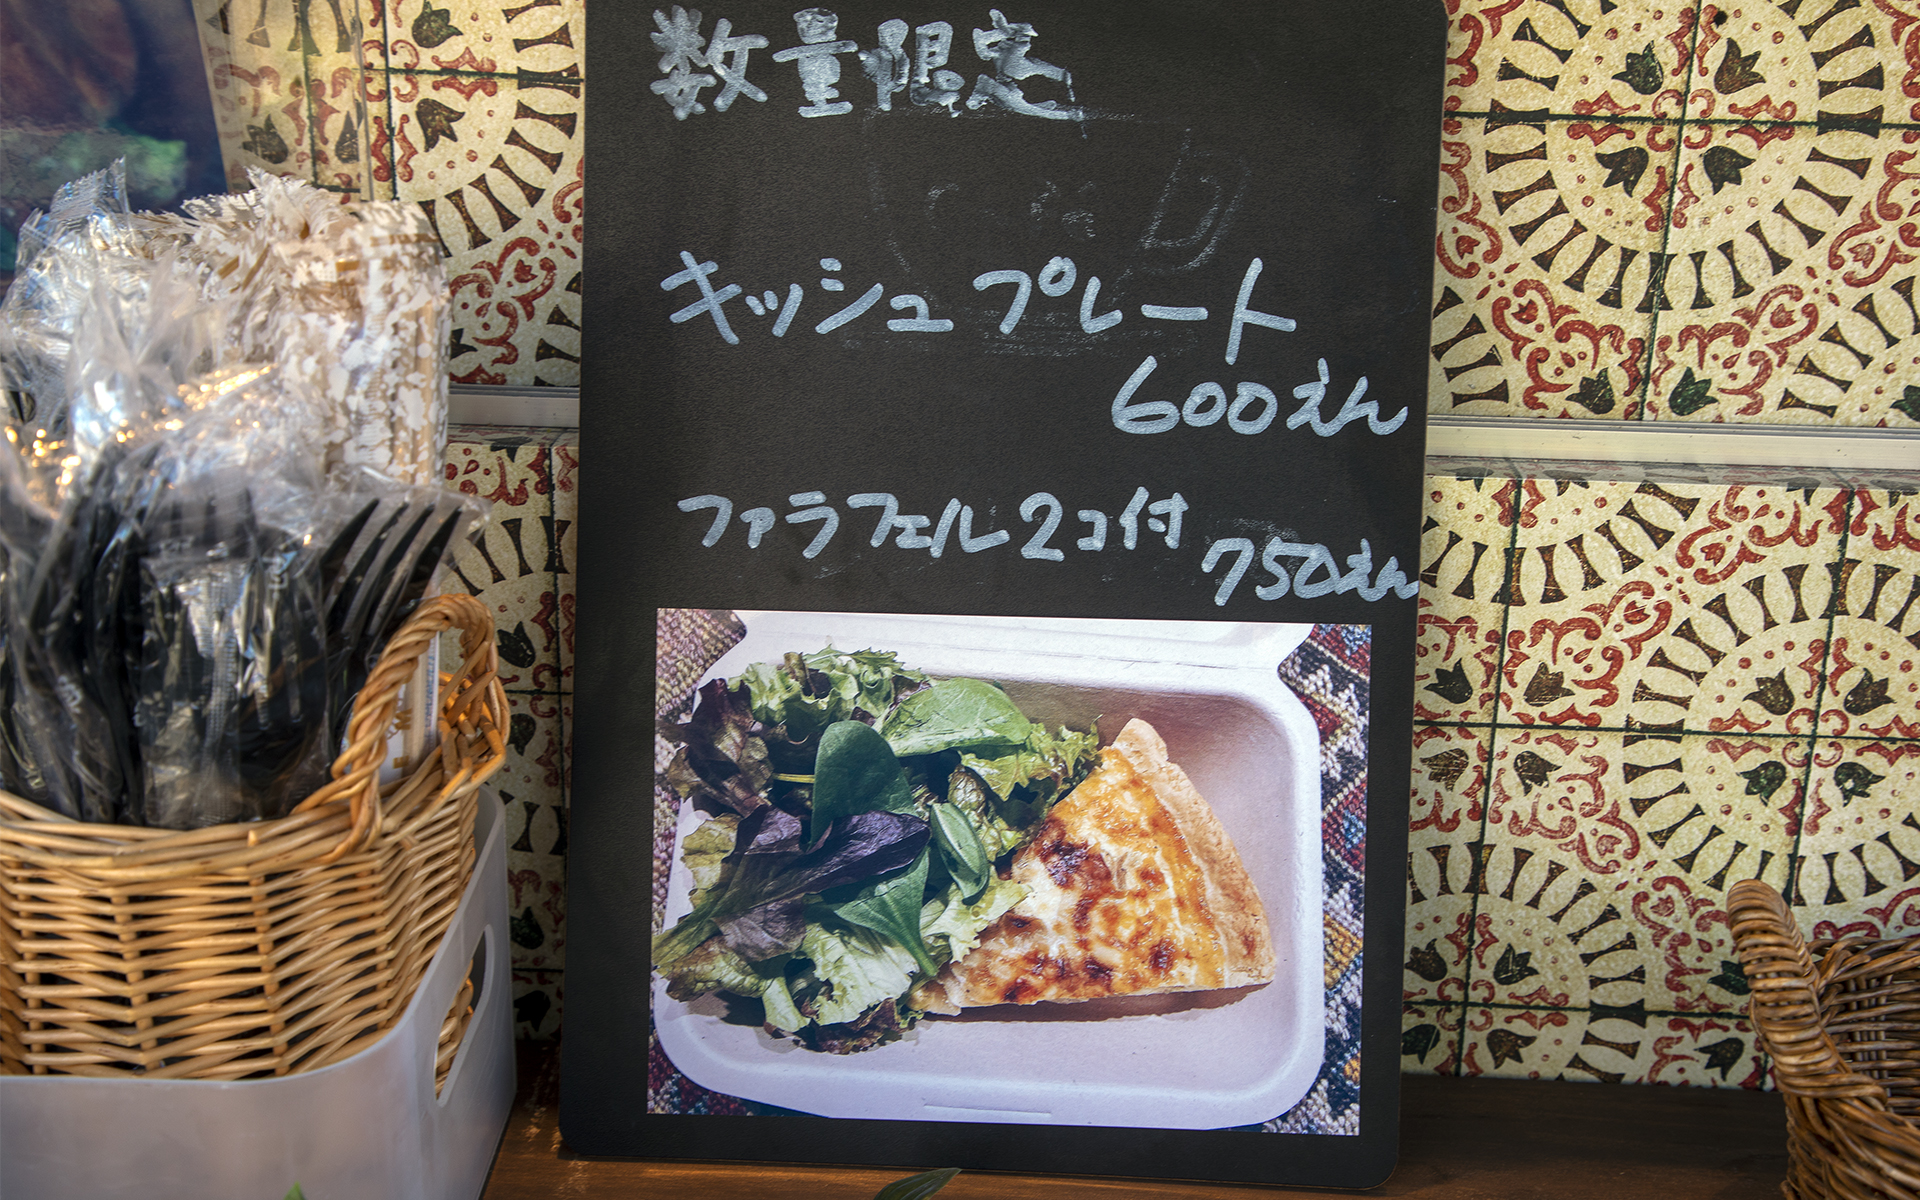 数量限定
キッシュプレート
600えん
ファラフェル2コ付
750えん